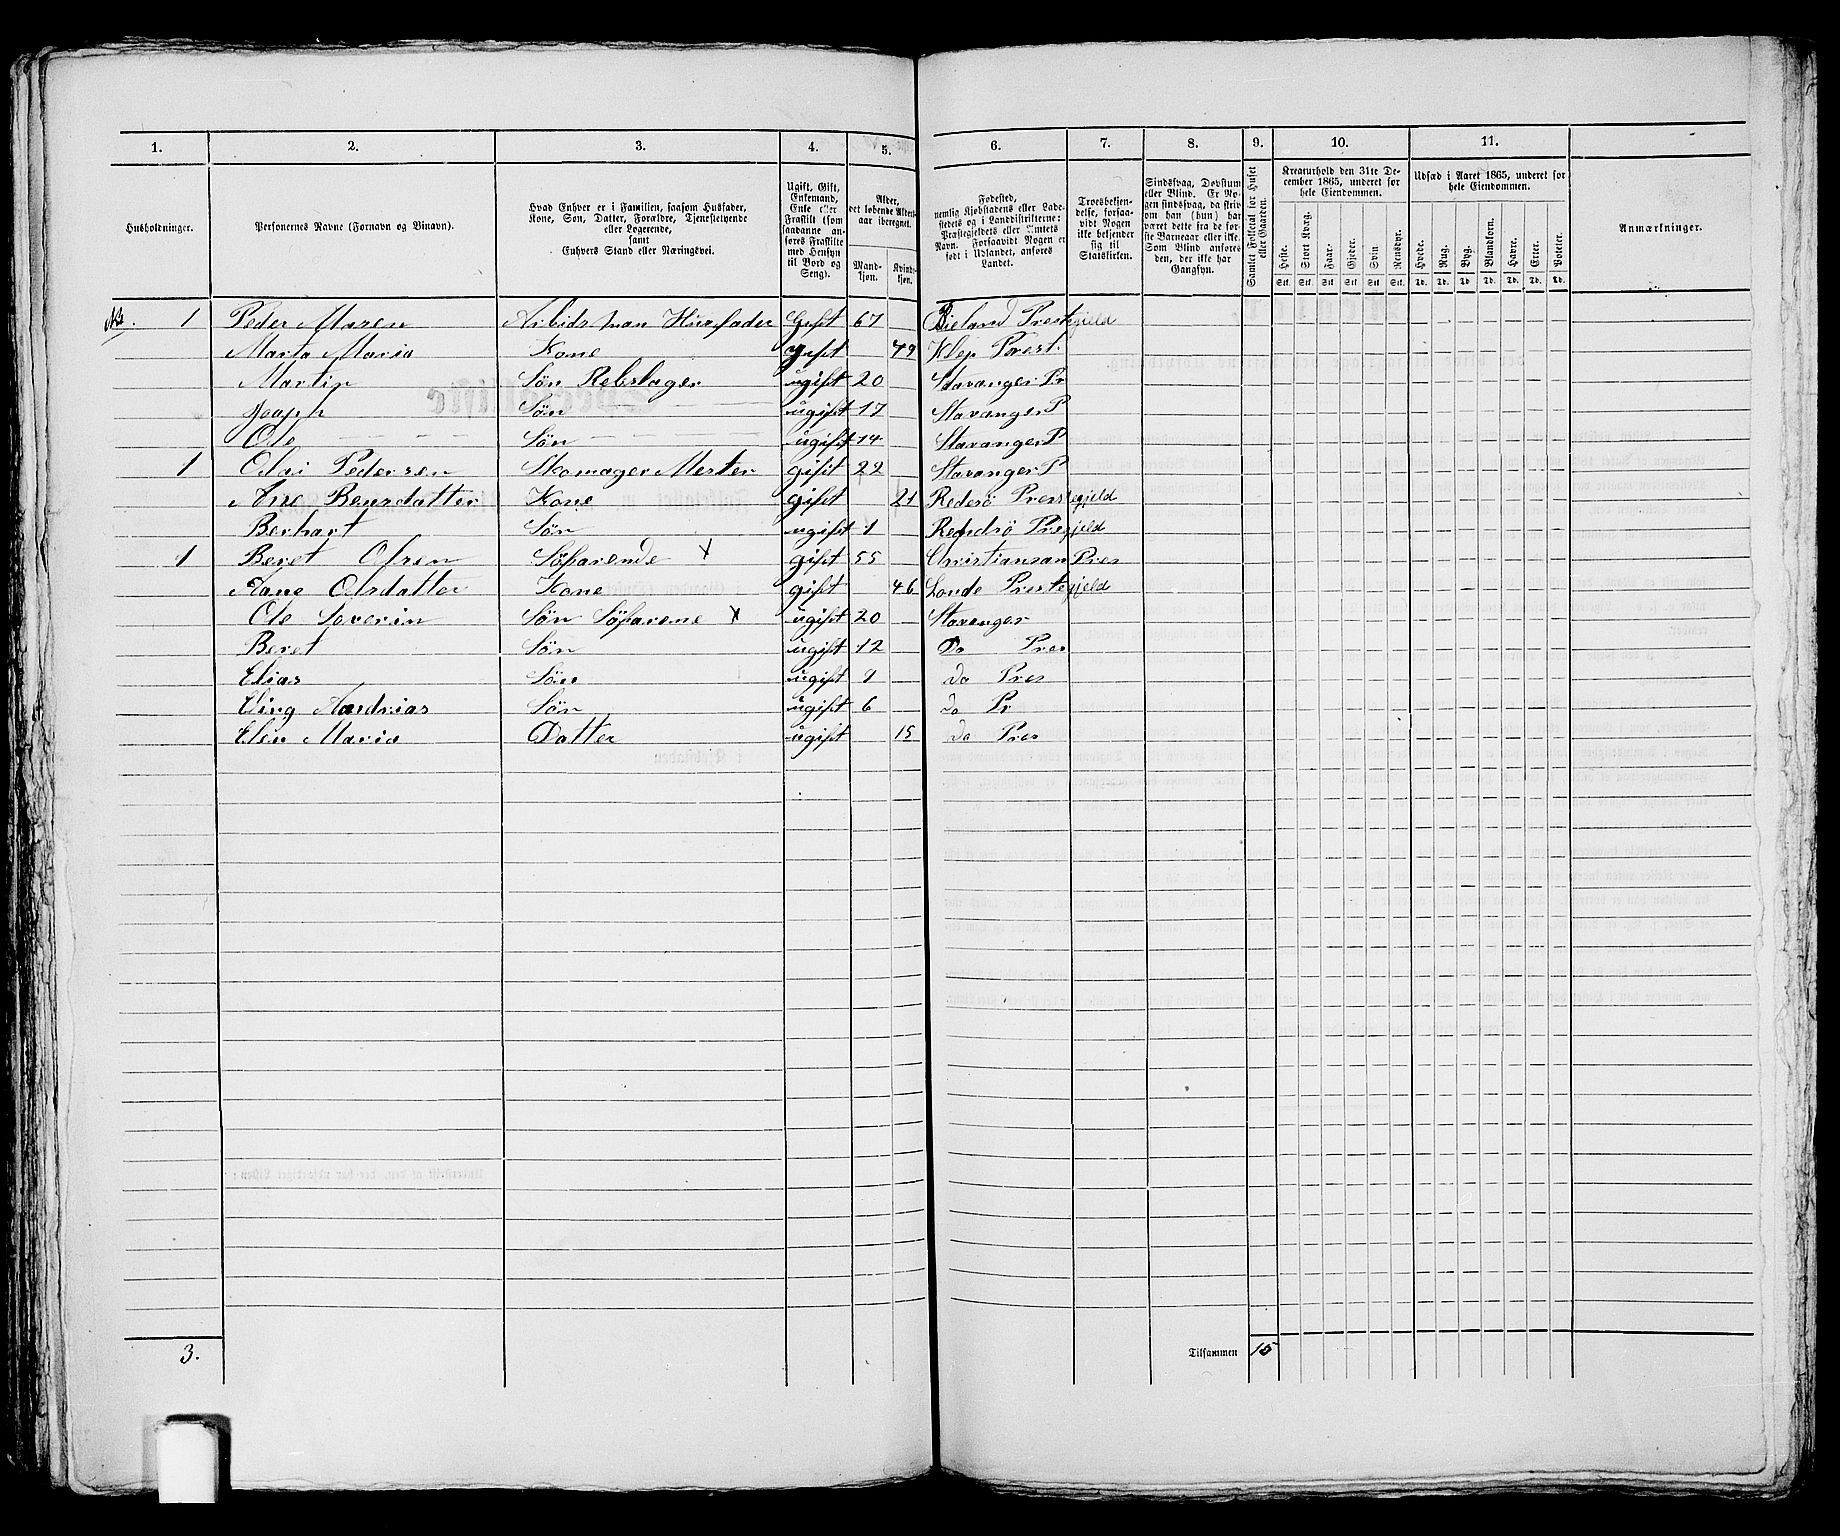 1. 2. 3. 4. 5. 6. 7. 8. 9. 10. 11.
Husholdninger.
Personernes Navne (Fornavn og Binavn).
Hvad Enhver er i Familien, saasom Husfader,
Kone, Søn, Datter, Forældre, Tjenestetyende
eller Logerende,
samt
Enhvers Stand eller Næringsvei.
Ugift, Gift,
Enkemand,
Enke eller
Fraskilt (som
saadanne an-
føres Fraskilte
med Hensyn
til Bord og
Seng).
Alder,
det løbende Alders-
aar iberegnet.
Mand-
kjøn.
Kvind-
kjøn.
Fødested,
nemlig Kjøbstadens eller Lade-
stedets og i Landdistrikterne:
Præstegjeldets eller Amtets
Navn. Forsaavidt Nogen er
født i Udlandet, anføres
Landet.
Troesbekjen-
delse, forsaa-
vidt Nogen
ikke bekjender
sig til
Statskirken.
Sindssvag, Døvstum
eller Blind. Er No-
gen sindssvag, da skriv
om han (hun) har
været dette fra de før-
ste Barneaar eller ikke.
Som Blind anføres
den, der ikke har
Gangsyn.
Samlet Folketal for Huset
eller Gaarden.
Kreaturhold den 31te De-
cember 1865, underet for
hele Eiendommen.
Heste. Stort Kvæg. Faar. Gjeder. Svin Rensdyr.
Stk. Stk. Stk. Stk. Stk. Stk.
Udsæd i Aaret 1865, underet for
hele Eiendommen.
Hvede. Rug. Byg. Blandkorn. Havre. Erter. Poteter.
Td. Td. Td. Td. Td. Td. Td.
Anmærkninger.
1 Peder Maren Arbids man Husfader Gift 67 Bieland Prestegield
Marta Maria Kone gift 49 Klep Prest.
Martin Søn Rebslager ugift 20 Stavanger Pr
Joaph Søn ugift 17 Stavanger P
Ole Søn ugift 14 Stavanger P
1 Olai Pedersen Skomager Mester gift 22 Stavanger P
Ane Bensdatter Kone gift 21 Redesö Prestegjeld
Berhart Søn ugift 1 Prestegjeld
1 Beret Olsen Söfarende X gift 55 Christiansan Pres
Aane Olsdatter Kone gift 46 Londe Prestegjeld
Ole Severin Søn Söfarene X ugift 20 Stavanger
Beret Søn ugift 12 Do Pres
Elias Søn ugift 9 do Pres
Eling Aandrias Søn ugift 6 do Pr
Elen Maria Datter ugift 15 do Pres
3. Tilsammen 15